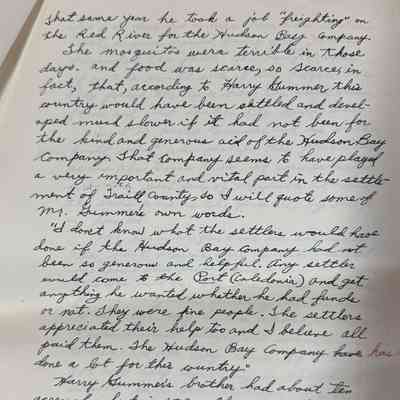 That same year he took a job "freighting" on
the Red River for the Hudson Bay Company.
The mosquitos were terrible in those
days. and food was scarce, so scarce, in
fact, that, according to Harry Gummer this
country would have been settled and devel-
oped much slower if it had not been for
the kind and generous aid of the Hudson Bay
Company. That company seems to have played
a very important and vital part in the settle-
ment of Traill County, so I will quote some of
Mr. Gummer's own words.
"I don't know what the settlers would have
done if the Hudson Bay Company had not
been so generous and helpful. Any settler
would come to the Port (Caledonia) and get
anything he wanted whether he had funds
or not. They were fine people. The settlers
appreciated their help too and I believe all
paid them. The Hudson Bay Company have has
done a lot for this country."
Harry Gummer's brother had about ten